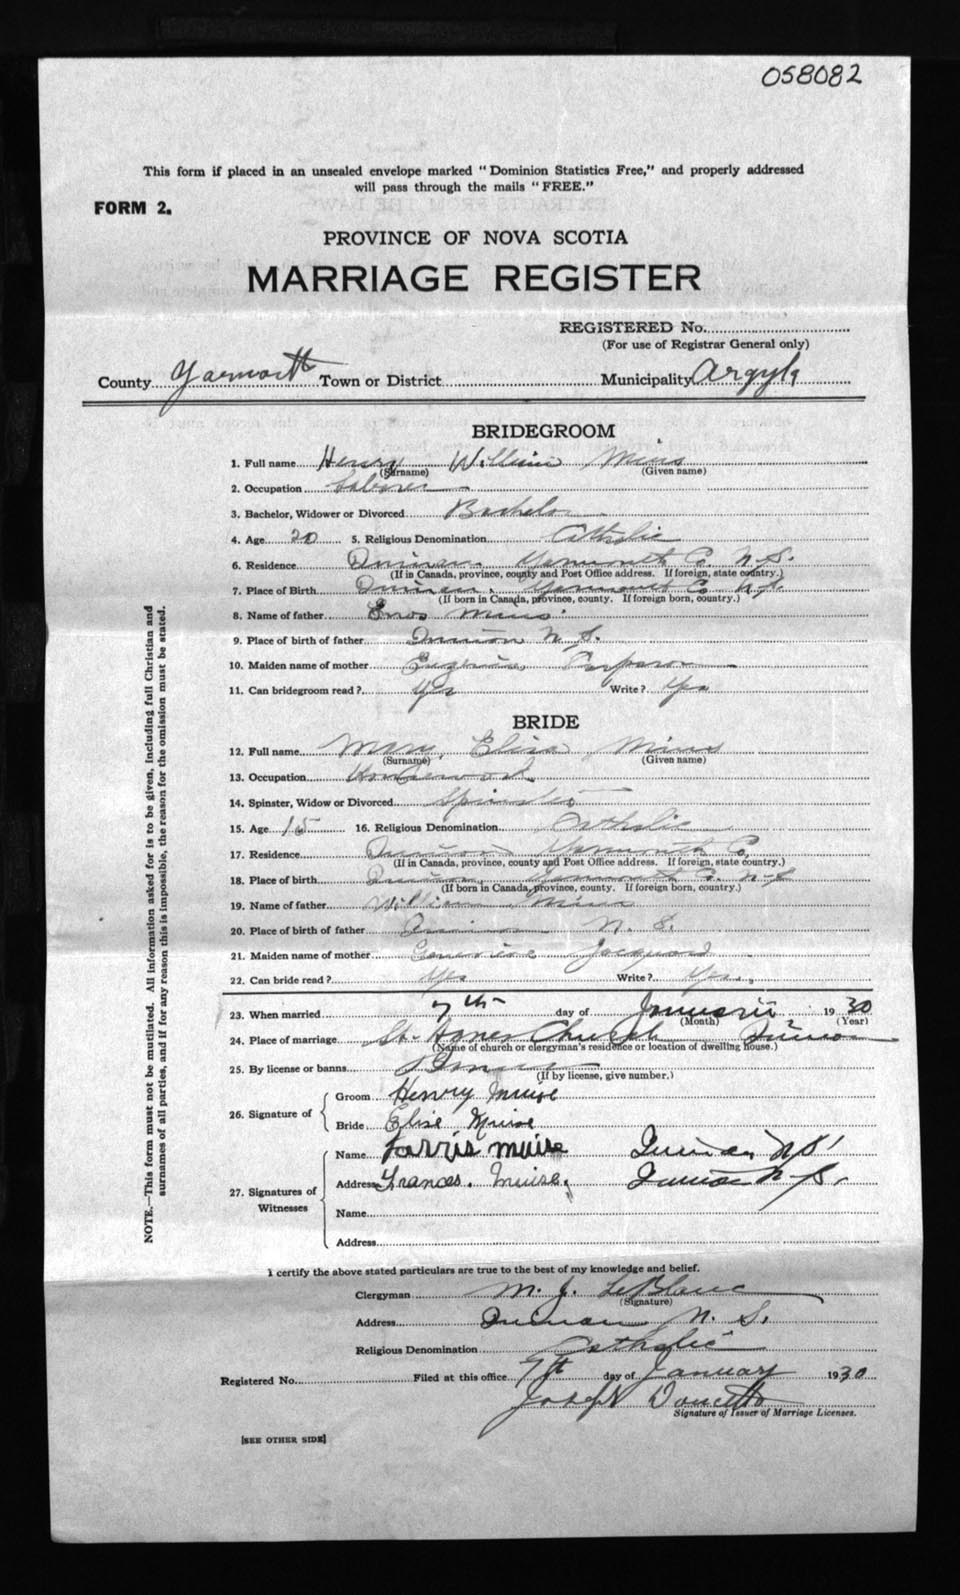 058082
This form if placed in an unsealed envelope marked "Dominion Statistics Free," and properly addressed
will pass through the mails "FREE."
FORM 2.
PROVINCE OF NOVA SCOTIA
MARRIAGE REGISTER
REGISTERED No.
(For use of Registrar General only)
County Yarmouth Town or District Municipality Argyle
BRIDEGROOM
1. Full name Henry William
(Surname) (Given name)
2. Occupation Laborer
3. Bachelor, Widower or Divorced Bachelor
4. Age 20 5. Religious Denomination Catholic
6. Residence Yarmouth Co. N.S.
(If in Canada, province, county and Post Office address. If foreign, state country.)
7. Place of Birth Yarmouth Co N.S.
(If born in Canada, province, county. If foreign born, country.)
8. Name of father
9. Place of birth of father N.S.
10. Maiden name of mother
11. Can bridegroom read? Yes Write? Yes
BRIDE
12. Full name Mary Elisa
(Surname) (Given name)
13. Occupation
14. Spinster, Widow or Divorced Spinster
15. Age 15 16. Religious Denomination Catholic
17. Residence Yarmouth Co.
(If in Canada, province, county and Post Office address. If foreign, state country.)
18. Place of birth Yarmouth Co. N.S.
(If born in Canada, province, county. If foreign born, country.)
19. Name of father William
20. Place of birth of father N.S.
21. Maiden name of mother
22. Can bride read? Yes Write? Yes.
23. When married 7th day of 1930
(Month) (Year)
24. Place of marriage St. Agnes Church
(Name of church or clergyman's residence or location of dwelling house.)
25. By license or banns
(If by license, give number.)
26. Signature of Groom Henry Muise
Bride Elise Muise
27. Signatures of Witnesses
Name Muise N.S.
Address Frances. Muise. N.S.
Name
Address
I certify the above stated particulars are true to the best of my knowledge and belief.
Clergyman M. J. LeBlanc
(Signature)
Address N. S.
Religious Denomination Catholic
Registered No. Filed at this office 7th day of January 1930
Joseph Doucette
Signature of Issuer of Marriage Licenses.
[SEE OTHER SIDE]
NOTE.—This form must not be mutilated. All information asked for is to be given, including full Christian and
surnames of all parties, and if for any reason this is impossible, the reason for the omission must be stated.